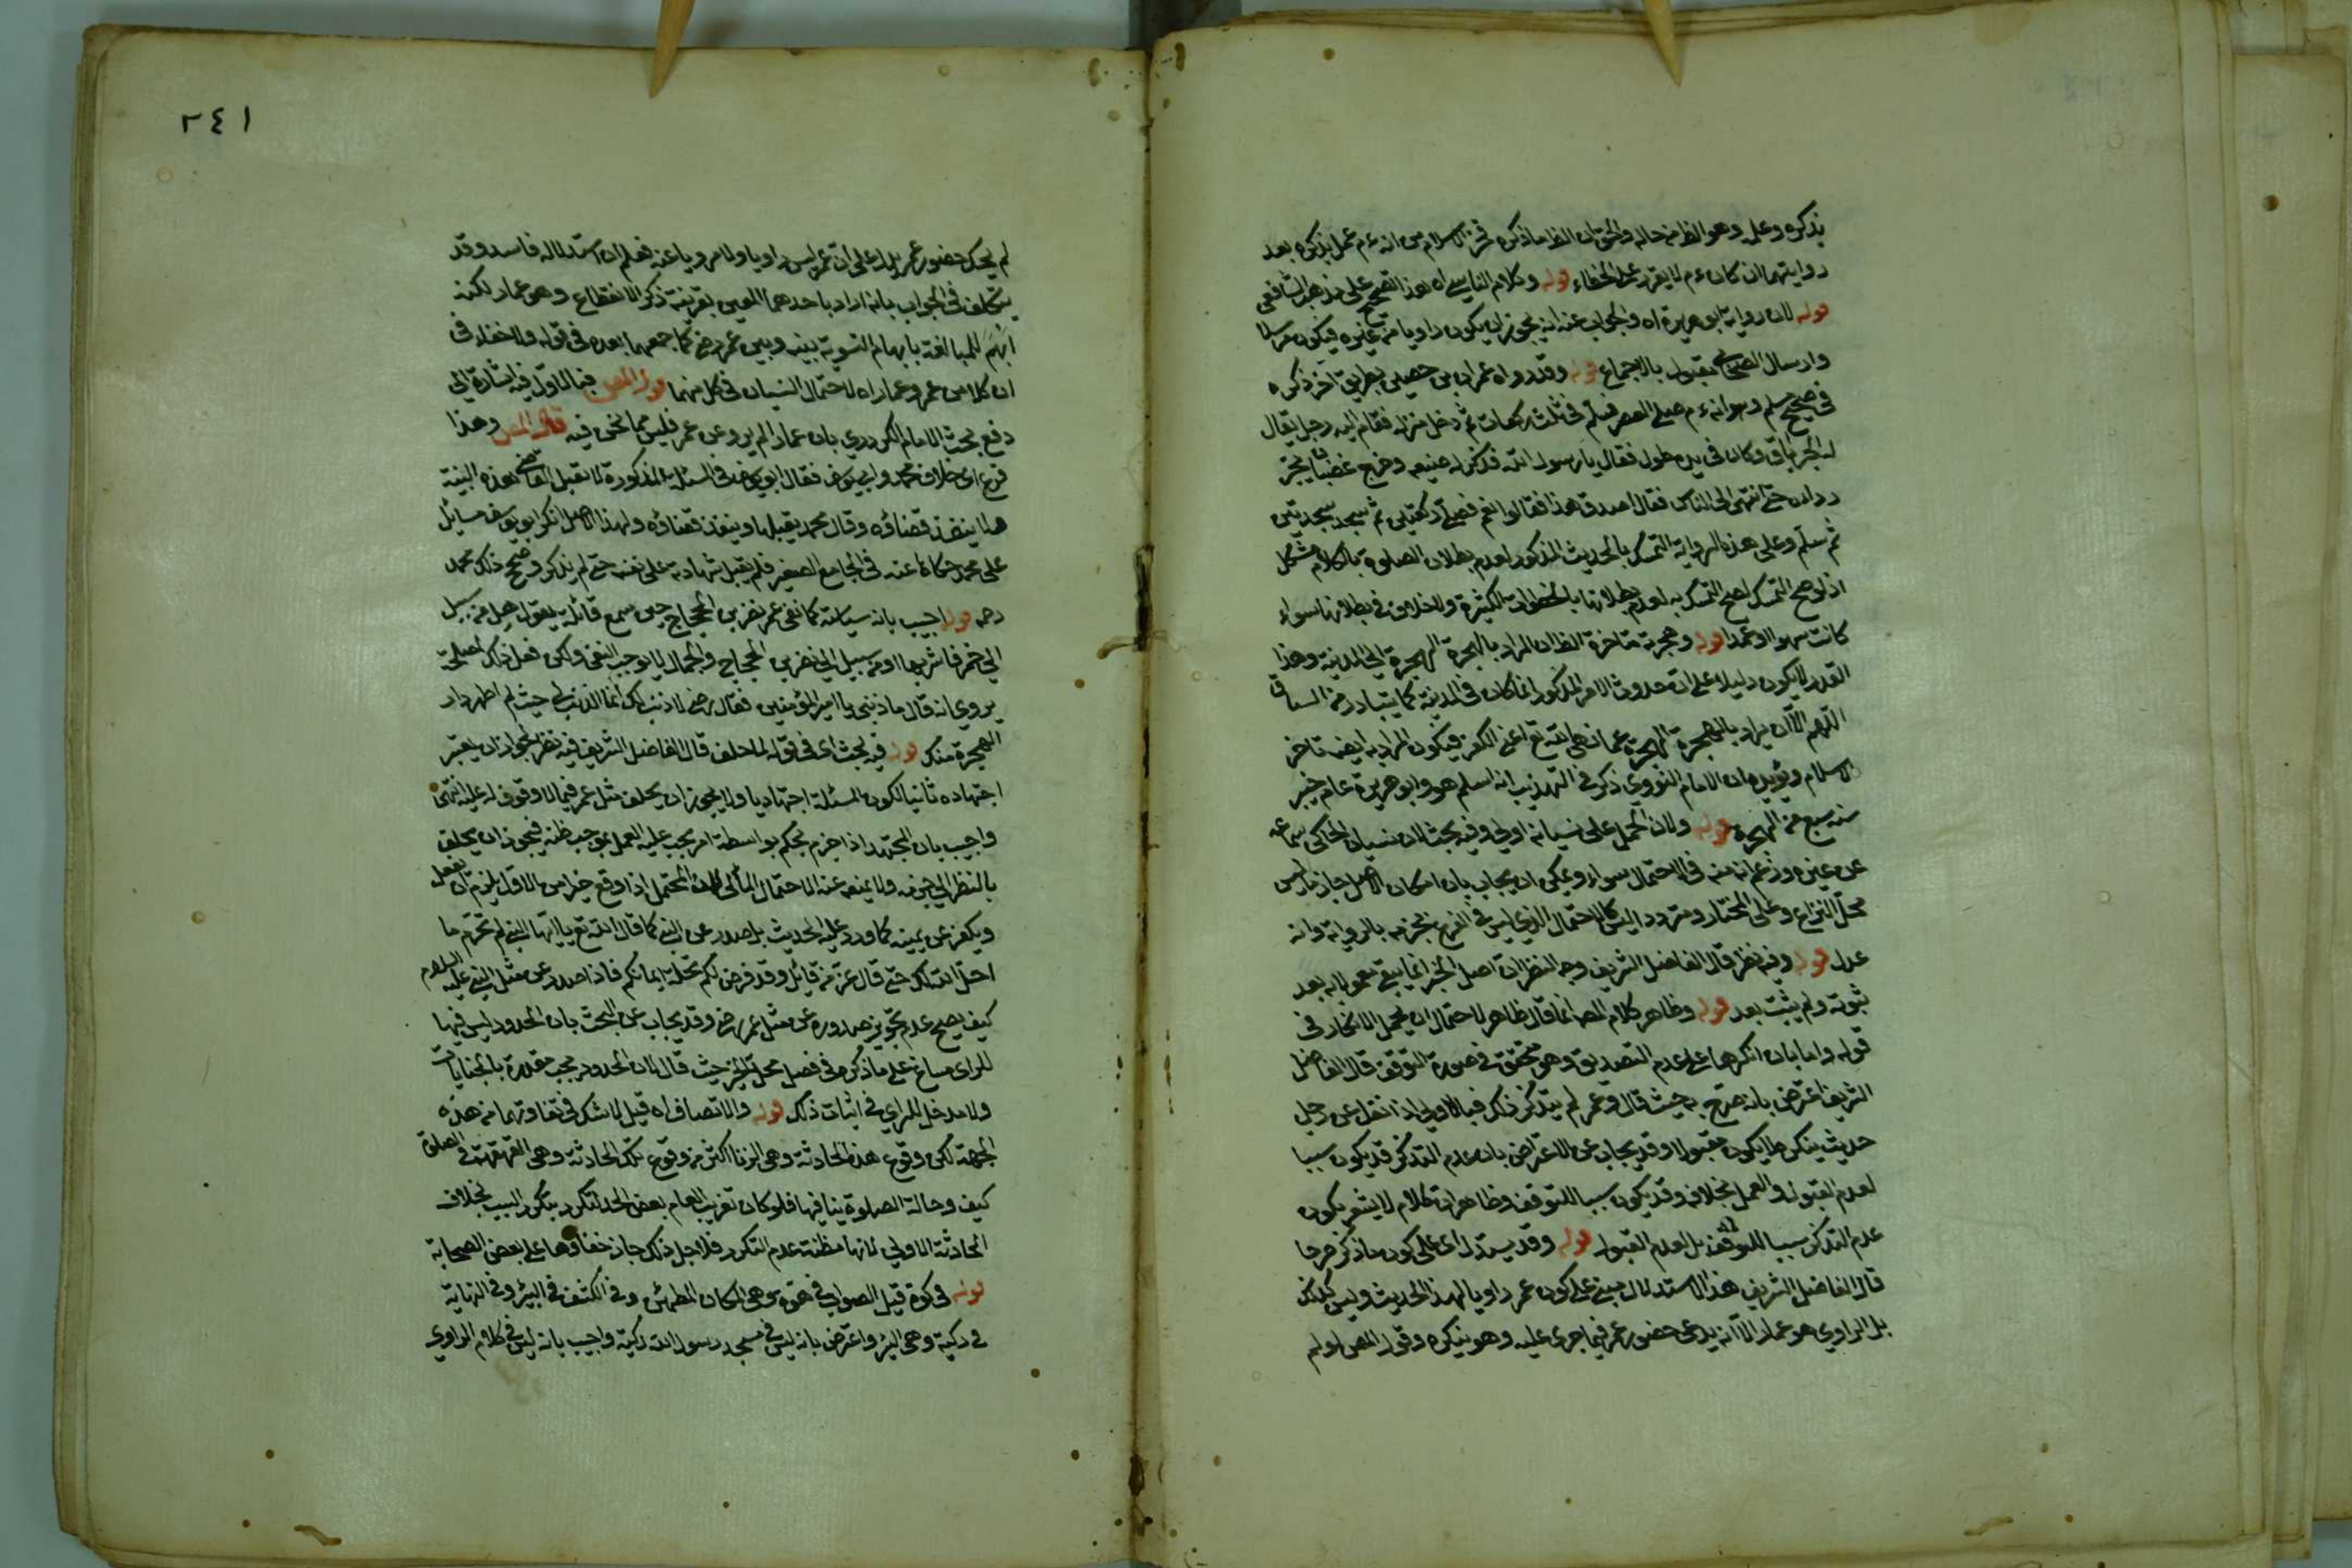 يذكره وعليه وهو الظ من حاله والحق ان الظ ما ذكره فخر الاسلام من انه ءم عمل بذكره بعد
روايتهما ان كان ءم لا يقر على الخطاء قوله وكلام الناسي اه هذا تصحيح على مذهب الشافعي
قوله لان رواية ابو هريرة اه والجواب عنه انه يجوز ان يكون راويا من غيره فيكون مرسلا
وارسال الصحابي مقبول بالاجماع قوله وقد رواه عمران بن حصين بطريق آخر ذكره
في صحيح مسلم وهو انه ءم صلى العصر فسلم في ثلث ركعات ثم دخل منزله فقام اليه رجل يقال
له الخرباق وكان في يده طول فقال يا رسول الله فذكر له صنيعه وخرج غضبانا يجر
رداءه حتى انتهى الى الناس فقال اصدق هذا فقالوا نعم فصلى ركعتين ثم سجد سجدتين
ثم سلم وعلى هذه الرواية التمسك بالحديث المذكور لعدم بطلان الصلوة بالكلام مشكل
اذ لو صح التمسك لصح التمسك به لعدم بطلانها بالخطوات الكثيرة ولا خلاف في بطلانها سواء
كانت سهوا او عمدا قوله وهجرته متاخرة الظ ان المراد بالهجرة الهجرة الى المدينة وهذا
القدر لا يكون دليلا على ان حدوث الامر المذكور انما كان في المدينة كما يتبادر من السياق
اللهم الا ان يراد بالهجرة الهجرة عما نهى الله تع اعني الكفر فيكون المراد به ايضا تاخر
الاسلام ويؤيده ان الامام النووي ذكر في التهذيب انه اسلم هو وابو هريرة عام خيبر
سنة سبع من الهجرة قوله ولان الحمل على نسيانه اولى وفيه بحث لان نسيان الحاكي سماعه
عن غيره وزعم انه منه في الاحتمال سواء ويمكن ان يجاب بان امكان الاصل جازما ليس
محل النزاع وعلى المختار ومتردد اليس كالاحتمال الذي ليس في الفرع لجزمه بالرواية وانه
عدل قوله وفيه نظر قال الفاضل الشريف وجه النظر ان اصل الخبر انما يبقى معمولا به بعد
ثبوته ولم يثبت بعد قوله وظاهر كلام المص انما قال ظاهر لاحتمال ان يحمل الانكار في
قوله واما بان انكرهما على عدم التصديق وهو متحقق في صورة التوقف قال الفاضل
الشريف اعترض بانه صرح به حيث قال وعمر لم يتذكر ذلك فبالاولى اذا نقل عن رجل
حديث ينكره لا يكون مقبولا وقد يجاب عن الاعتراض بان عدم التذكر قد يكون سببا
لعدم القبول والعمل بخلافه وقد يكون سببا للتوقف وظاهر ان كلامه لا يشعر بكون
عدم التذكر سببا للتوقف بل لعدم القبول قوله وقد يستدل اى على كون ما ذكر جرحا
قال الفاضل الشريف هذا الاستدلال مبني على كون عمر راويا لهذا الحديث وليس كذلك
بل الراوي هو عمار الا انه يدعى حضور عمر فيما جرى عليه وهو ينكره وقول المص او لم
٢٤١
لم يحك حضور عمر يدل على ان عمر ليس راويا ولا مرويا عنه فعلم ان استدلاله فاسد وقد
يتكلف في الجواب بانه اراد باحدهما المعين بقرينة ذكر الانقطاع وهو عمار لكنه
ابهم للمبالغة بايهام التسوية بينه وبين عمر رضى كما جمعهما بعده في قوله ولا خفاء في
ان كلا من عمر وعمار اه لاحتمال النسيان في كل منهما قول المص فبالاولى فيه اشارة الى
دفع بحث الامام الكردري بان عمارا لم يرو عن عمر فليس مما نحن فيه قال المص وهذا
فرع اى خلاف محمد وابي يوسف فقال ابو يوسف في المسئلة المذكورة لا تقبل القاضي هذه البينة
ولا ينفذ قضاؤه وقال محمد يقبلها وينفذ قضاؤه ولهذا الاصل انكر ابو يوسف مسائل
على محمد حكاها عنه في الجامع الصغير فلم يقبل شهادته على نفسه حتى لم يذكر وصحح ذلك محمد
رحمه قوله اجيب بانه سياسة كما نفى عمر نصر بن الحجاج حين سمع قائلة يقول هل من سبيل
الى خمر فاشربها او من سبيل الى نصر بن الحجاج والجمال لا يوجب النفي ولكن فعل ذلك لمصلحة
يروى انه قال ما ذنبي يا امير المؤمنين فقال رضى لا ذنب لك انما الذنب لي حيث لم اطهر دار
الهجرة منك قوله فيه بحث اى في قوله لما حلف قال الفاضل الشريف فيه نظر لجواز ان يتغير
اجتهاده ثانيا لكون المسئلة اجتهاديا ولا يجوز ان يحلف مثل عمر فيما لا وقوف له عليه انتهى
واجيب بان المجتهد اذا جزم بحكم بواسطة امر يجب عليه العمل بموجب ظنه فيجوز ان يحلف
بالنظر الى جزمه ولا يمنعه عنه الاحتمال المآلي لان المحتمل اذا وقع خيرا من الاول يلزم ان يفعل
ويكفر عن يمينه كما ورد عليه الحديث بل صدر عن النبي كما قال الله تع يا ايها النبي لم تحرم ما
احل الله لك حتى قال عز من قائل وقد فرض لكم تحلة ايمانكم فاذا صدر عن مثل النبي عليه السلام
كيف يصح عدم تجويز صدوره عن مثل عمر رضى وقد يجاب عن البحث بان الحدود ليس فيها
للراى مساغ على ما ذكره في فصل محل الخبر حيث قال لان الحدود يجب مقدرة بالجنايات
ولا مدخل للراى في اثبات ذلك قوله والانصاف اه قيل لا شك في تفاوتهما من هذه
الجهة لكن وقوع هذه الحادثة وهى الزنا اكثر من وقوع تلك الحادثة وهى القهقهة في الصلوة
كيف وحالة الصلوة ينافيها فلو كان تغريب العام بعض الحد لتكرر بتكرر السبب بخلاف
الحادثة الاولى لانها مظنة عدم التكرر فلاجل ذلك جاز خفاؤها على بعض الصحابة
قوله في كوة قيل الصواب في هوة وهى المكان المطمئن وفي الكشف في البئر وفي النهاية
في ركية وهى البئر واعترض بانه ليس في مسجد رسول الله ركية واجيب بانه ليس في كلام الراوي